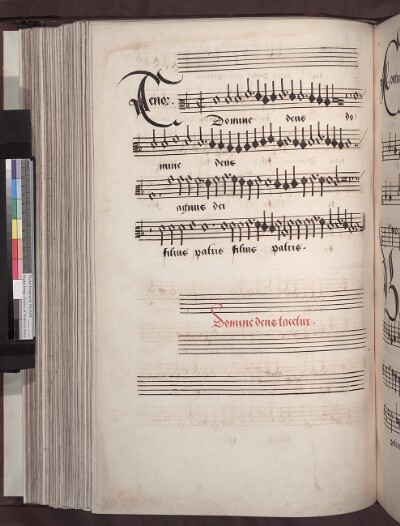 Tenor.
Domine deus do
mine deus
agnus dei
filius patris filius patris.
Domine deus tacetur.